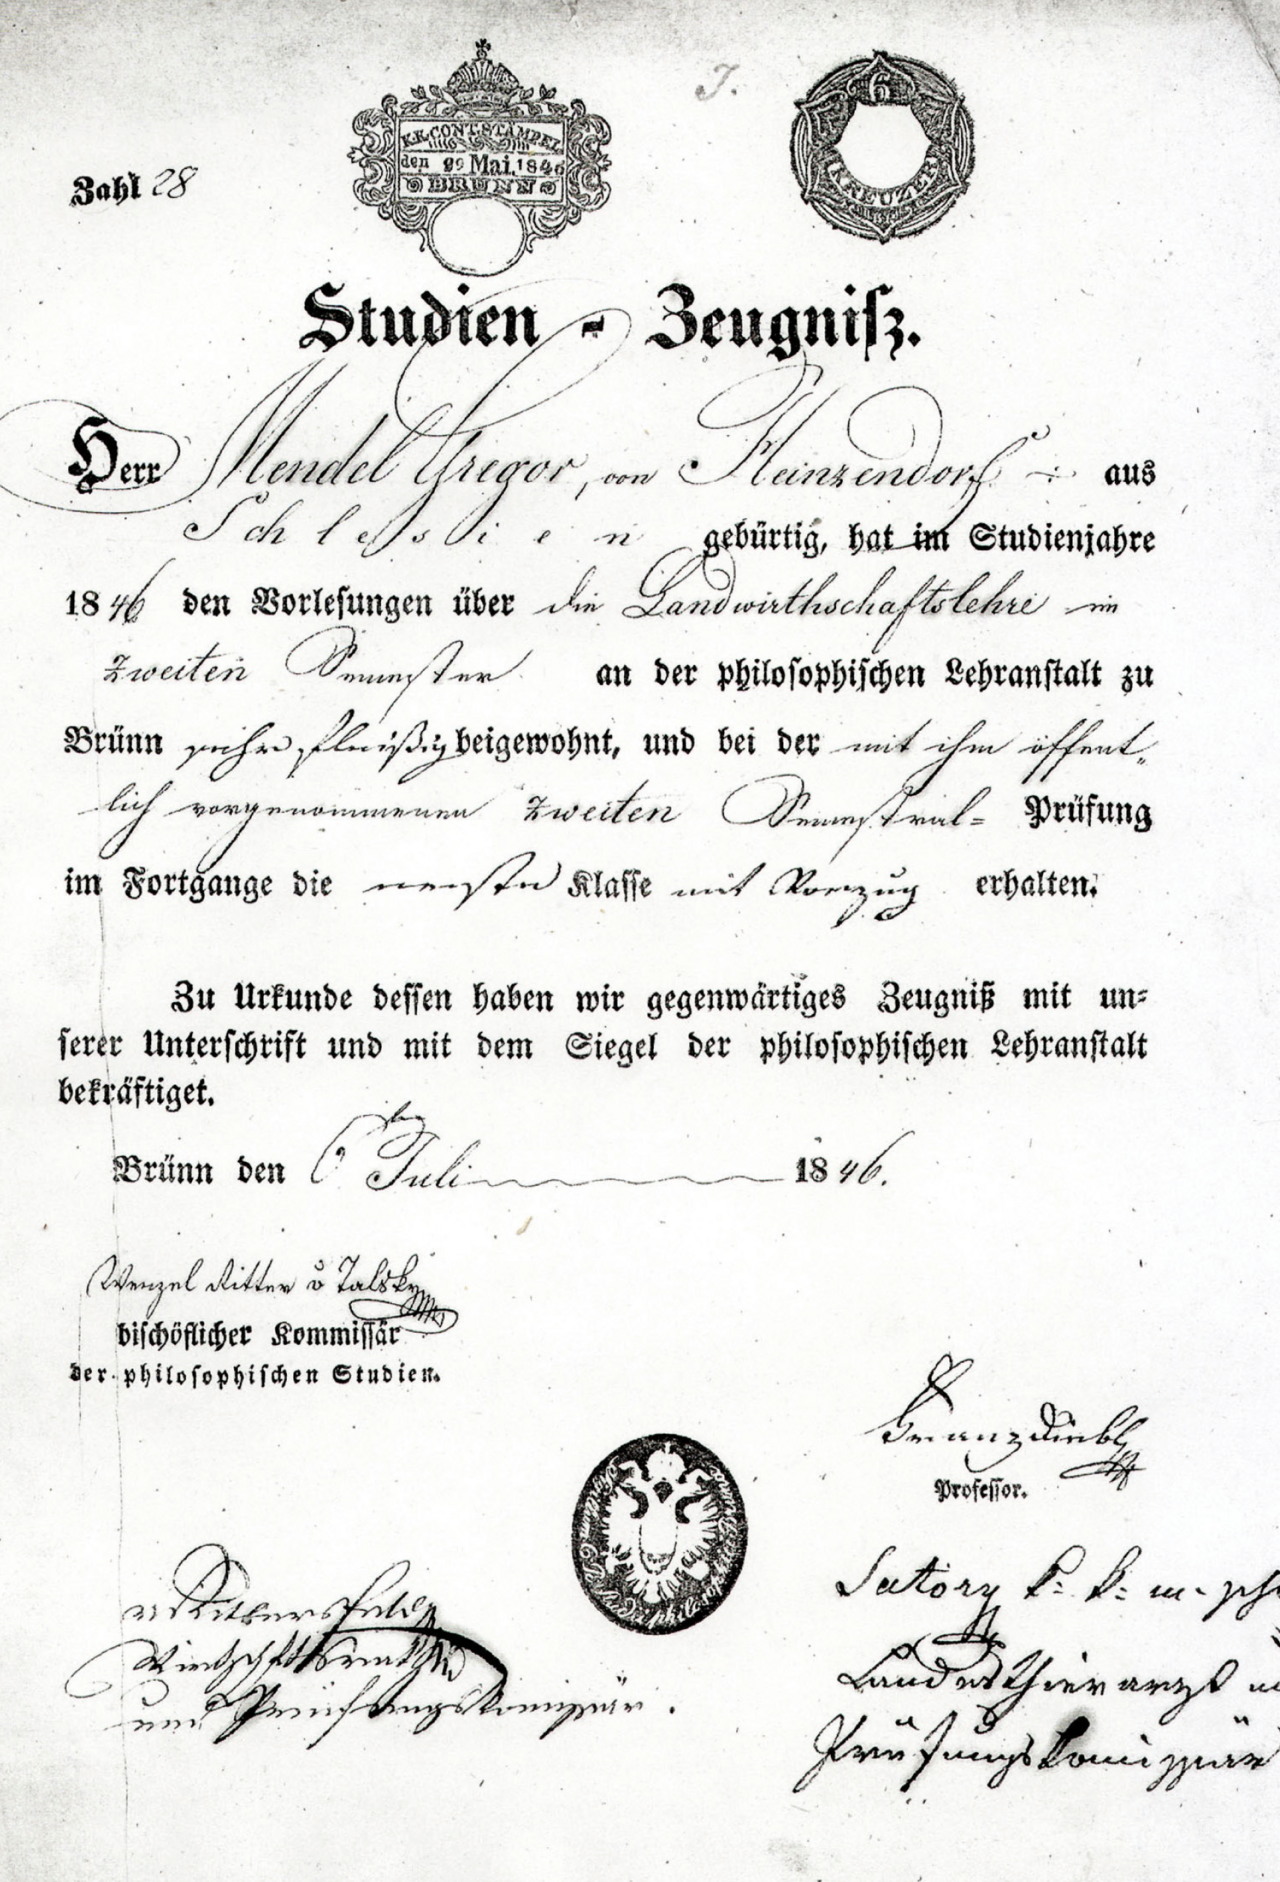 J.
K.K.CONT.STAMPEL
den 29 Mai.1846
BRÜNN
6
KREUZER
Zahl 28
Studien - Zeugniſz.
Herr Mendel Gregor, von Heinzendorf aus
Schlesien gebürtig, hat im Studienjahre
1846 den Vorleſungen über die Landwirthschaftslehre im
zweiten Semester an der philoſophiſchen Lehranſtalt zu
Brünn sehr fleißig beigewohnt, und bei der mit ihm öffent-
lich vorgenommenen zweiten Semestral= Prüfung
im Fortgange die erste Klaſſe mit Vorzug erhalten.
Zu Urkunde deſſen haben wir gegenwärtiges Zeugniß mit un=
ſerer Unterſchrift und mit dem Siegel der philoſophiſchen Lehranſtalt
bekräftiget.
Brünn den 6 Juli 1846.
Wenzel Ritter v Talsky
biſchöflicher Kommiſſär
der philoſophiſchen Studien.
Franz Diebl
Profeſſor.
und Prüfungskomissär.
Satory k: k:
Landesthierarzt
Prüfungskomissär